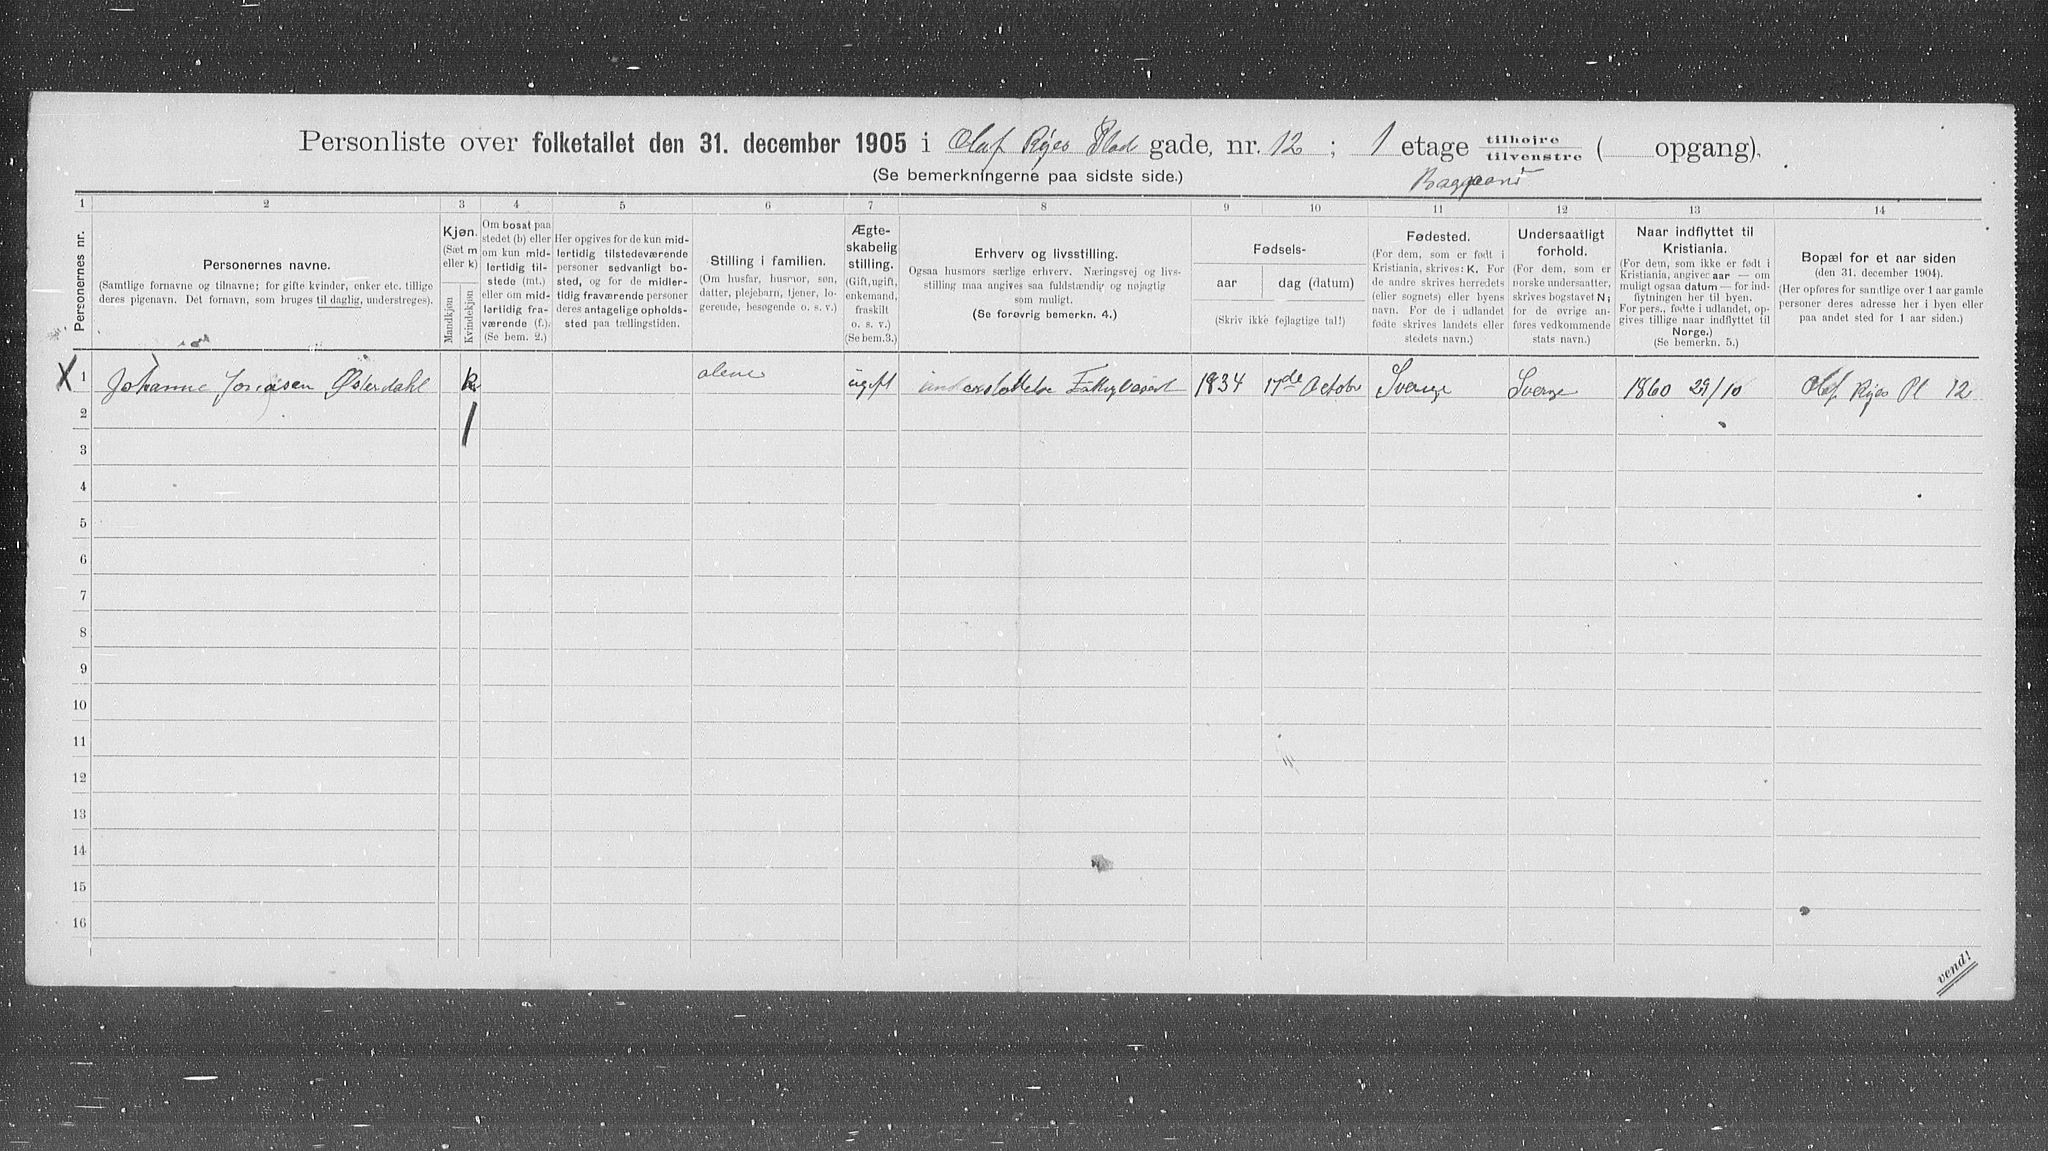 Personliste over folketallet den 31. december 1905 i Olaf Ryes Plads gade, nr. 12 ; 1 etage tilhøire tilvenstre ( opgang).
(Se bemerkningerne paa sidste side.)
1 2 3 4 5 6 7 8 9 10 11 12 13 14
Personernes nr.
Personernes navne.
(Samtlige fornavne og tilnavne; for gifte kvinder, enker etc. tillige
deres pigenavn. Det fornavn, som bruges til daglig, understreges).
Kjøn.
(Sæt m
eller k)
Mandkjøn
Kvindekjøn
Om bosat paa
stedet (b) eller
om kun mid-
lertidig til-
stede (mt.)
eller om mid-
lertidig fra-
værende (f.).
(Se bem. 2.)
Her opgives for de kun mid-
lertidig tilstedeværende
personer sedvanligt bo-
sted, og for de midler-
tidig fraværende personer
deres antagelige opholds-
sted paa tællingstiden.
Stilling i familien.
(Om husfar, husmor, søn,
datter, plejebarn, tjener, lo-
gerende, besøgende o. s. v.)
Ægte-
skabelig
stilling.
(Gift, ugift,
enkemand,
fraskilt
o. s. v.)
(Se bem. 3.)
Erhverv og livsstilling.
Ogsaa husmors særlige erhverv. Næringsvej og livs-
stilling maa angives saa fuldstændig og nøjagtig
som muligt.
(Se forøvrig bemerkn. 4.)
Fødsels-
aar
dag (datum)
(Skriv ikke fejlagtige tal!)
Fødested.
(For dem, som er født i
Kristiania, skrives: K. For
de andre skrives herredets
(eller sognets) eller byens
navn. For de i udlandet
fødte skrives landets eller
stedets navn.)
Undersaatligt
forhold.
(For dem, som er
norske undersaatter,
skrives bogstavet N;
for de øvrige an-
føres vedkommende
stats navn.)
Naar indflyttet til
Kristiania.
(For dem, som ikke er født i
Kristiania, angives aar — om
muligt ogsaa datum — for ind-
flytningen her til byen.
For pers., fødte i udlandet, op-
gives tillige naar indflyttet til
Norge.)
(Se bemerkn. 5.)
Bopæl for et aar siden
(den 31. december 1904).
(Her opføres for samtlige over 1 aar gamle
personer deres adresse her i byen eller
paa andet sted for 1 aar siden.)
X 1 Johanne Østerdahl k alene ugift Fattigvæsent 1834 17de Octobr Sverige Sverge 1860 29/10 Olaf Ryes Pl 12
2
3
4
5
6
7
8
9
10
11
12
13
14
15
16
vend!